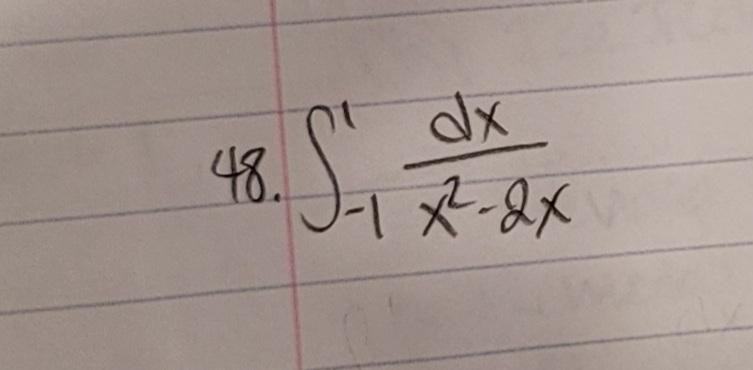 48. ∫₋₁¹ dx / (x² - 2x)